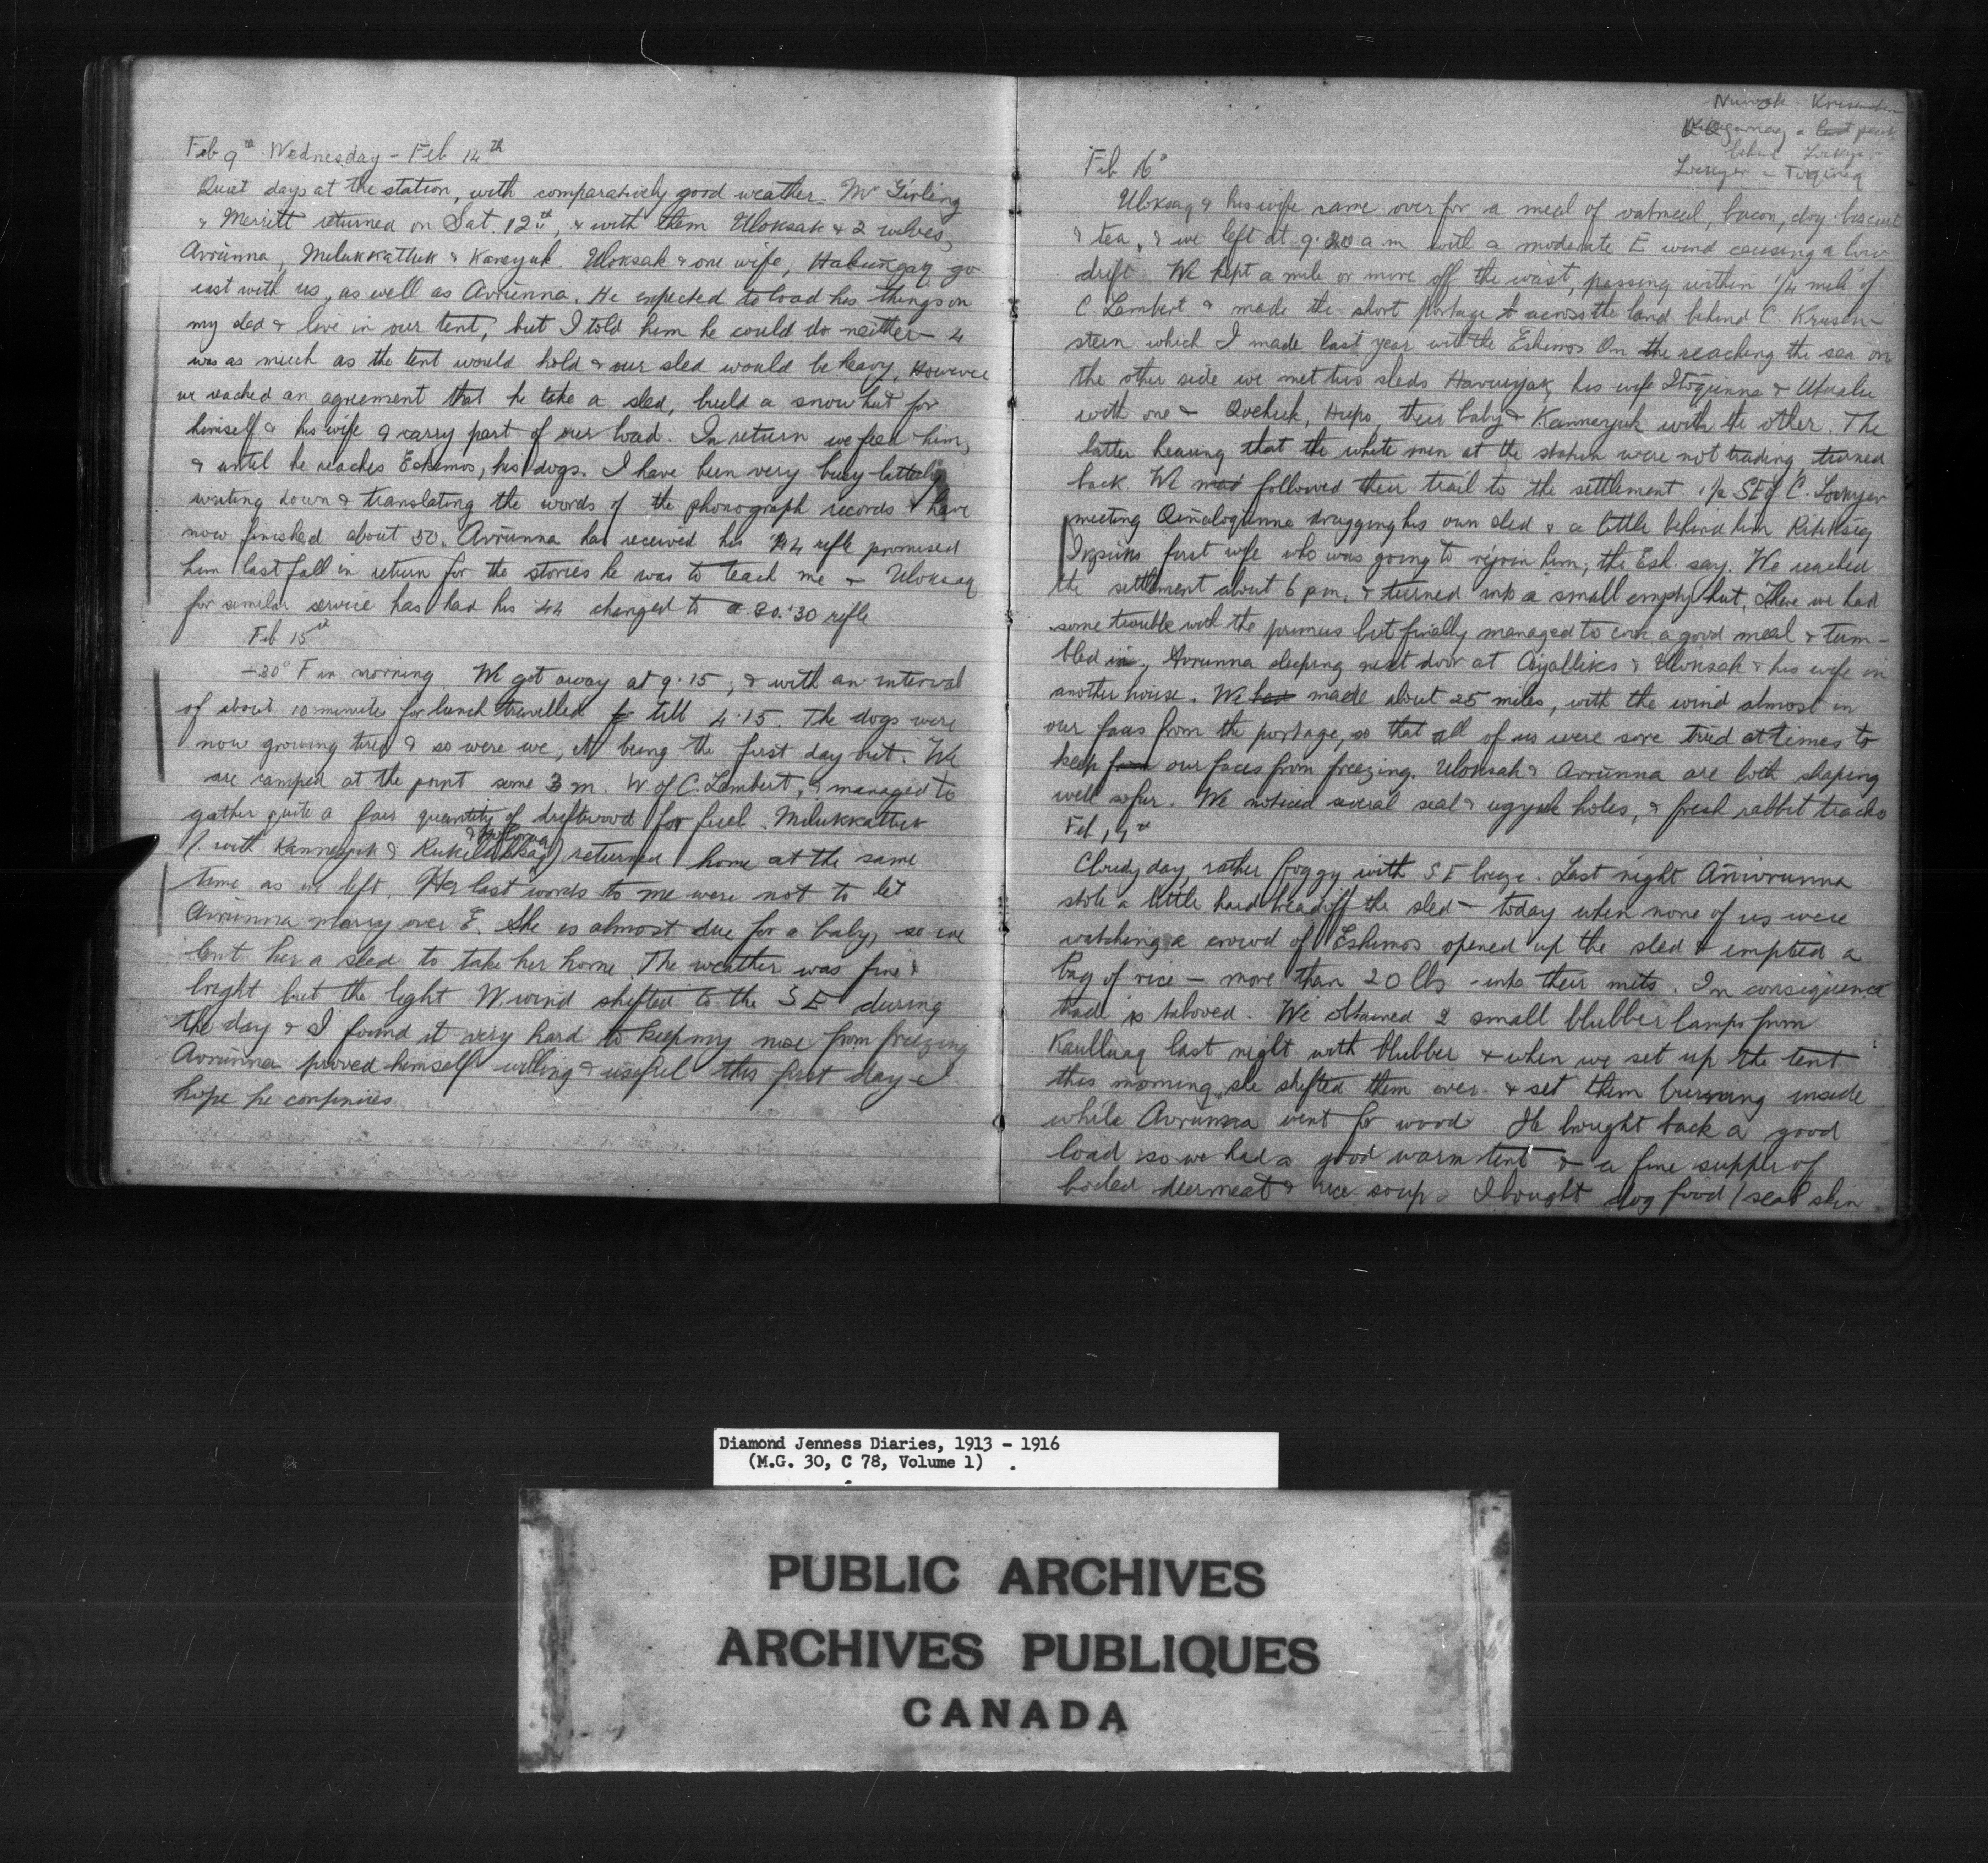 Feb 9th Wednesday - Feb 14th
Quiet days at the station, with comparatively good weather. Mr Girling
& Merritt returned on Sat. 12th, & with them Uloksak & 2 wolves,
Avrunna, Milukkattuk & Kaneyuk. Uloksak & one wife, Haqungaq go
east with us, as well as Avrunna. He expected to load his things on
my sled & live in our tent, but I told him he could do neither - 4
was as much as the tent would hold & our sled would be heavy. However
we reached an agreement that he take a sled, build a snow hut for
himself & his wife & carry part of our load. In return we feed him,
& until he reaches Eskimos, his dogs. I have been very busy latterly
writing down & translating the words of the phonograph records & have
now finished about 50. Avrunna has received his 44 rifle promised
him last fall in return for the stories he was to teach me & Uloksaq
for similar service has had his 44 changed to a 30.'30 rifle
Feb 15th
-30° F in morning We got away at 9.15, & with an interval
of about 10 minutes for lunch travelled till 4.15. The dogs were
now growing tired & so were we, it being the first day out. We
are camped at the point some 3 m. W of C. Lambert, & managed to
gather quite a fair quantity of driftwood for fuel. Milukkattuk
(with Kanneyuk & returned home at the same
time as we left. Her last words to me were not to let
Avrunna marry over E. She is almost due for a baby, so we
lent her a sled to take her home. The weather was fine &
bright but the light W wind shifted to the S E during
the day & I found it very hard to keep my nose from freezing
Avrunna proved himself willing & useful this first day - I
hope he continues
Nuwok - Krusenstern
a last point
behind Lockyer
Lockyer - Tirqineq
Feb 16th
Uloksaq & his wife came over for a meal of oatmeal, bacon, dog-biscuit
& tea, & we left at 9.20 a m with a moderate E wind causing a low
drift. We kept a mile or more off the coast, passing within 1/4 mile of
C. Lambert & made the short portage across the land behind C. Krusen-
stern which I made last year with the Eskimos On the reaching the sea on
the other side we met two sleds Haviuyak, his wife Itoqunna & Utualu
with one & Qoehuk, Hupo, their baby & Kanneyuk with the other. The
latter hearing that the white men at the station were not trading, turned
back We followed their trail to the settlement 1 1/2 SE of C. Lockyer
meeting Qinaloqunna dragging his own sled & a little behind him
first wife who was going to rejoin him, the Esk. say. We reached
the settlement about 6 pm, & turned into a small empty hut. There we had
some trouble with the primus but finally managed to cook a good meal & tum-
bled in, Avrunna sleeping next door at & Uloksak & his wife in
another house. We had made about 25 miles, with the wind almost in
our faces from the portage, so that all of us were sore tried at times to
keep from our faces from freezing. Uloksak & Avrunna are both shaping
well so far. We noticed several seal & ugyuk holes, & fresh rabbit tracks
Feb 17th
Cloudy day, rather foggy with S E breeze. Last night
stole a little hard bread off the sled - today when none of us were
watching a crowd of Eskimos opened up the sled & emptied a
bag of rice - more than 20 lbs - into their mits. In consequence
trade is tabooed. We obtained 2 small blubber lamps from
Kaulluaq last night with blubber & when we set up the tent
this morning she shifted them over & set them burning inside
while Avrunna went for wood. He brought back a good
load so we had a good warm tent & a fine supper of
boiled deermeat & rice soup. I bought dog food (seal skin
Diamond Jenness Diaries, 1913 - 1916
(M.G. 30, C 78, Volume 1)
PUBLIC ARCHIVES
ARCHIVES PUBLIQUES
CANADA